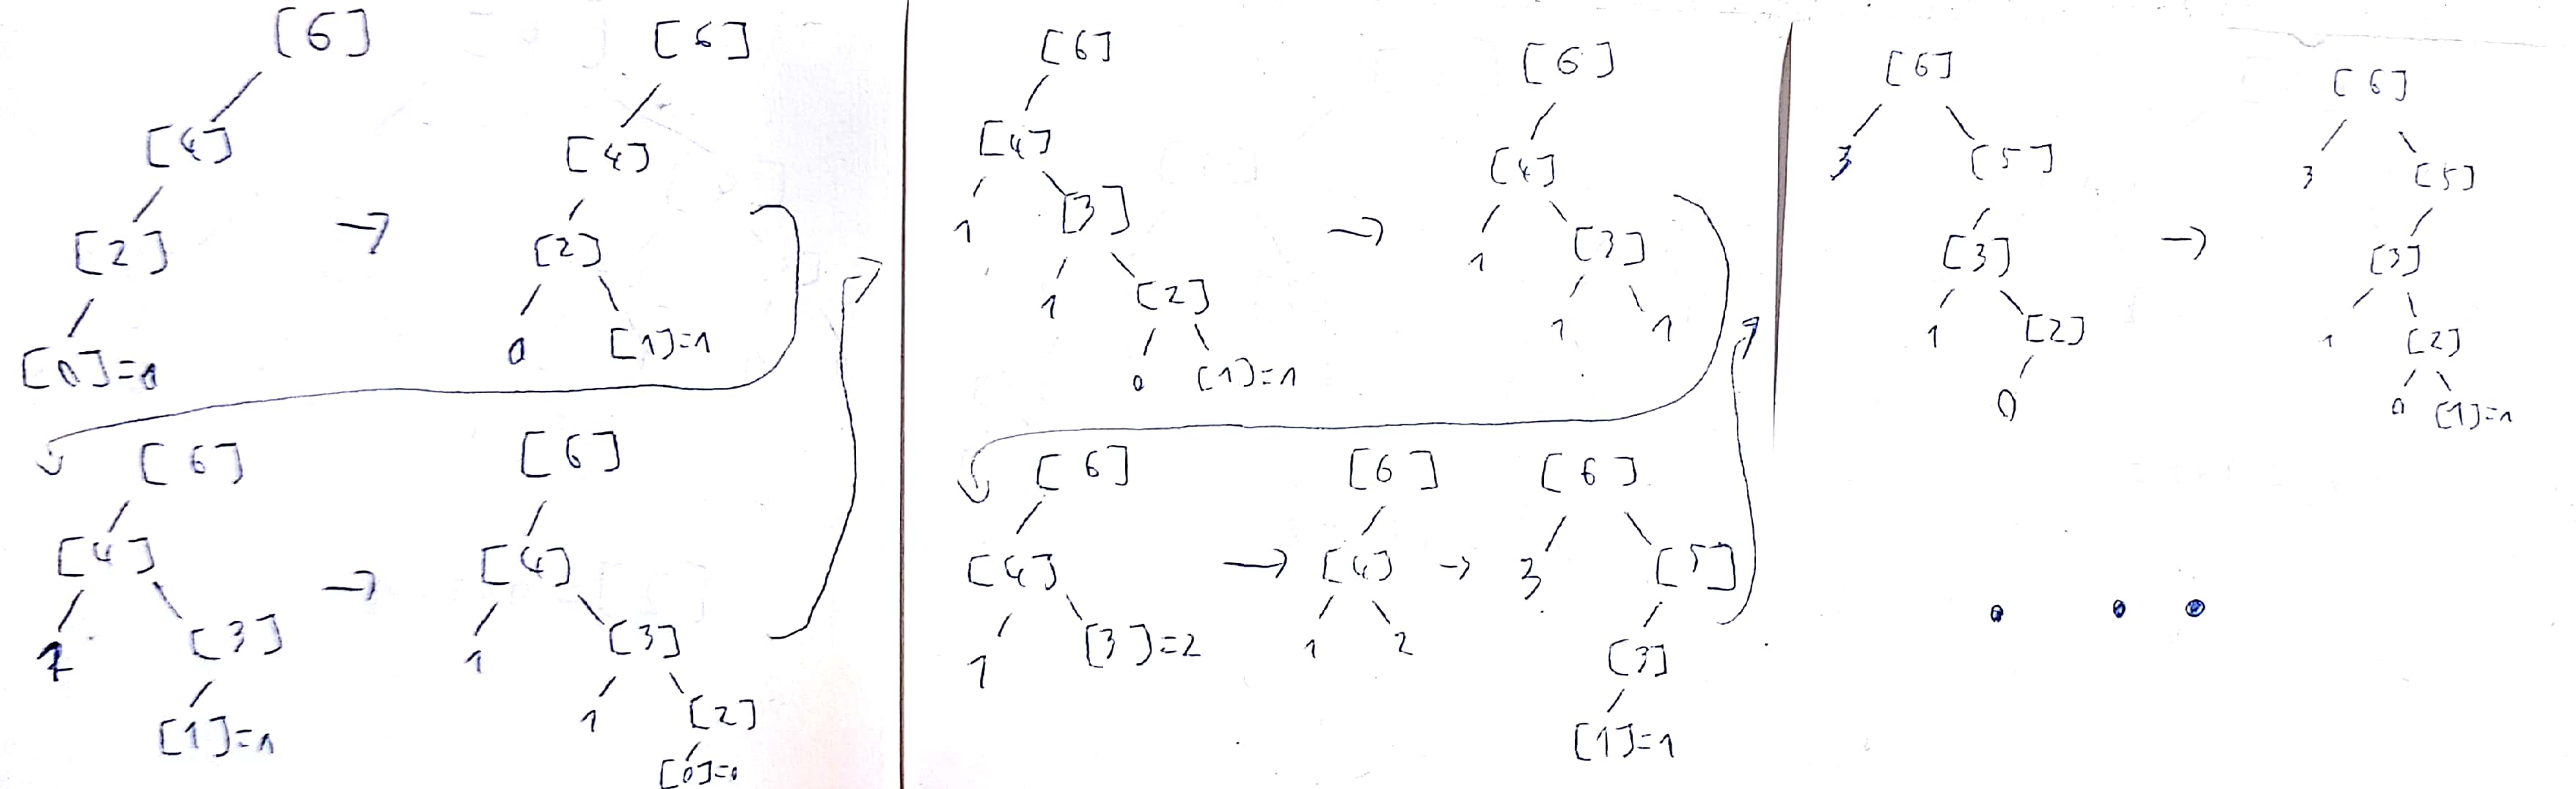 [6]
[4]
[2]
[0]=0
→
[6]
[4]
[2]
0 [1]=1
[6]
[4]
1 [3]
[1]=1
→
[6]
[4]
1 [3]
1 [2]
[0]=0
[6]
[4]
1 [3]
1 [2]
0 [1]=1
→
[6]
[4]
1 [3]
1 1
[6]
[4]
1 [3]=2
→
[6]
[4]
1 2
→
[6]
3 [5]
[3]
[1]=1
[6]
3 [5]
[3]
1 [2]
0
→
[6]
3 [5]
[3]
1 [2]
0 [1]=1
. . .